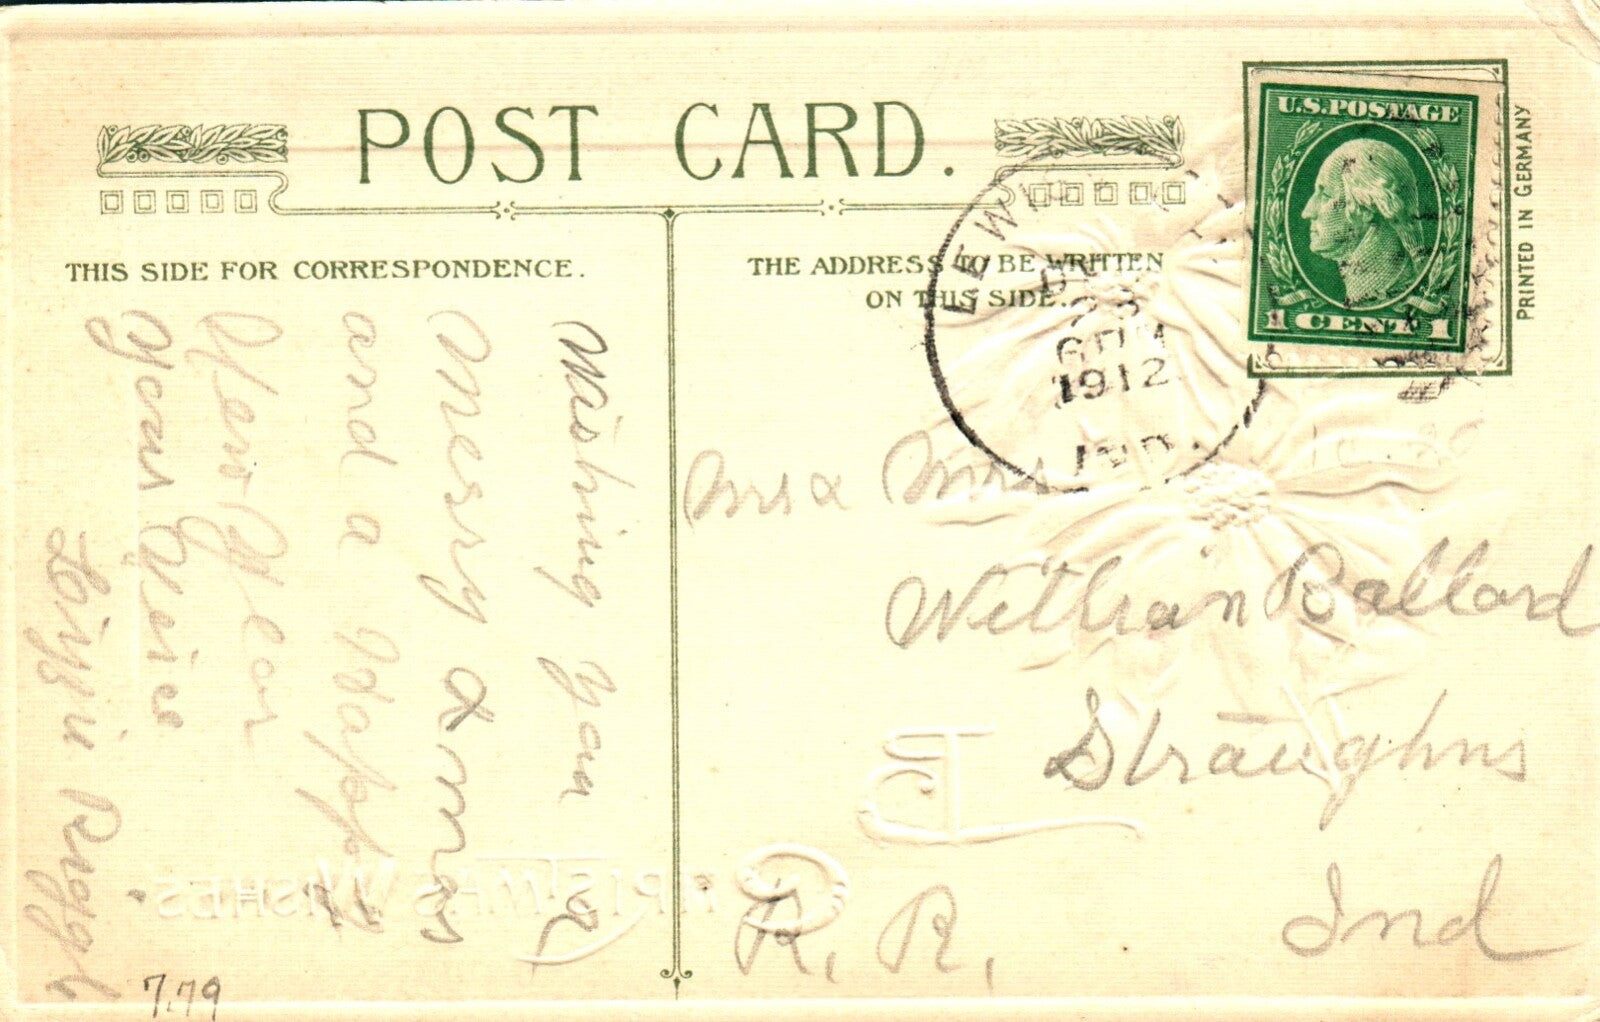 POST CARD.
THIS SIDE FOR CORRESPONDENCE.
THE ADDRESS TO BE WRITTEN
ON THIS SIDE.
U.S. POSTAGE
1 CENT 1
PRINTED IN GERMANY
23
1912
IND.
Wishing you a
Merry Xmas
and a Happy
New Year
your
Mr & Mrs
William Ballard
Straughns
Ind
R. R.
CHRISTMAS WISHES
7.79